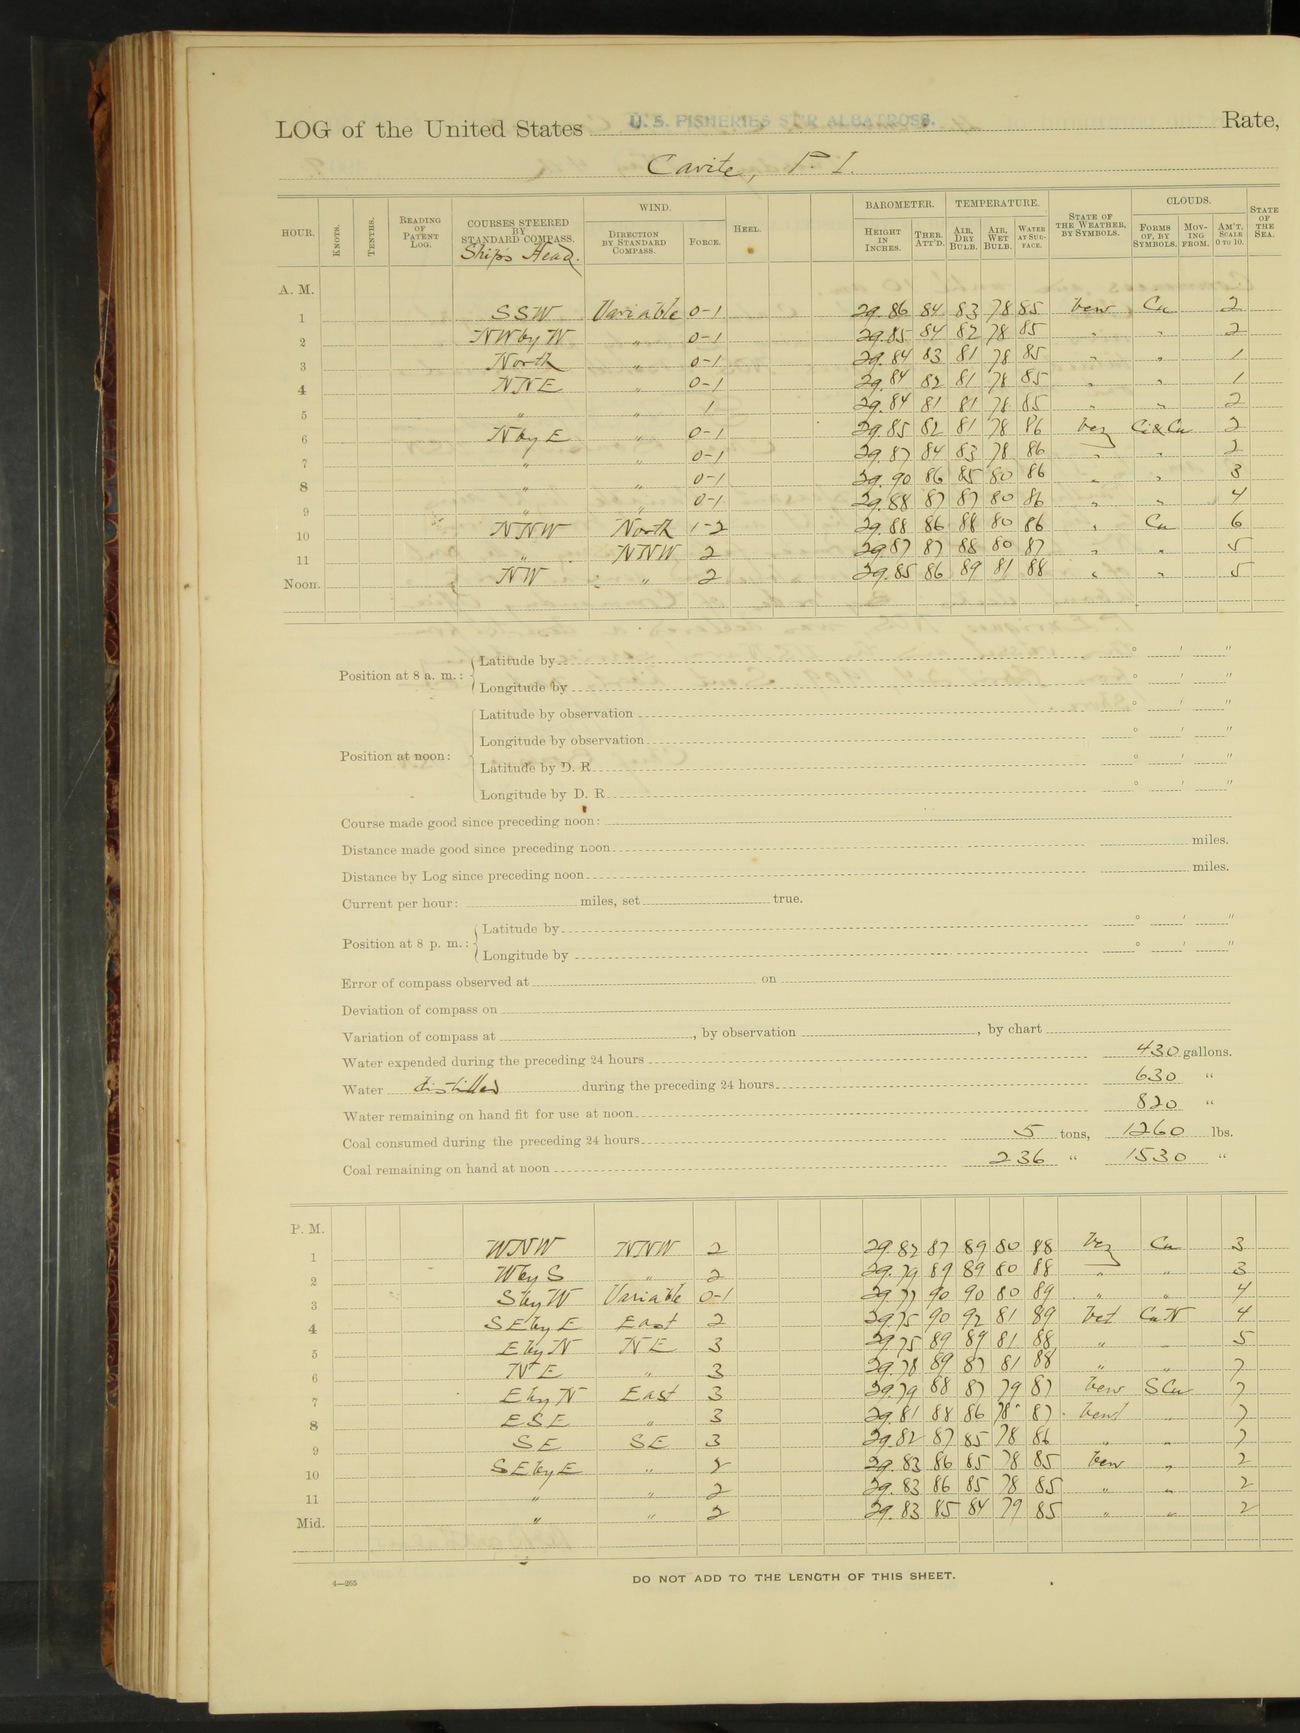 LOG of the United States U. S. FISHERIES STR ALBATROSS. Rate,
Cavite, P. I.
HOUR. KNOTS. TENTHS. READING OF PATENT LOG. COURSES STEERED BY STANDARD COMPASS. Ship's Head. WIND. DIRECTION BY STANDARD COMPASS. FORCE. HEEL. BAROMETER. HEIGHT IN INCHES. THER. ATT'D. TEMPERATURE. AIR, DRY BULB. AIR, WET BULB. WATER AT SURFACE. STATE OF THE WEATHER, BY SYMBOLS. CLOUDS. FORMS OF, BY SYMBOLS. MOVING FROM. AM'T, SCALE 0 TO 10. STATE OF THE SEA.
A. M.
1 SSW Variable 0-1 29.86 84 83 78 85 bcw Cu 2
2 NW by W " 0-1 29.85 84 82 78 85 " " 2
3 North " 0-1 29.84 83 81 78 85 " " 1
4 NNE " 0-1 29.84 82 81 78 85 " " 1
5 " " 1 29.84 81 81 78 85 " " 2
6 N by E " 0-1 29.85 82 81 78 86 bcz Ci&Cu 2
7 " " 0-1 29.87 84 83 78 86 " " 2
8 " " 0-1 29.90 86 85 80 86 " " 3
9 " " 0-1 29.88 87 87 80 86 " " 4
10 NNW North 1-2 29.88 86 88 80 86 " Cu 6
11 " NNW 2 29.87 87 88 80 87 " " 5
Noon. NW " 2 29.85 86 89 81 88 " " 5
Position at 8 a. m.: Latitude by ° ′ ″
Longitude by ° ′ ″
Position at noon: Latitude by observation ° ′ ″
Longitude by observation ° ′ ″
Latitude by D. R. ° ′ ″
Longitude by D. R. ° ′ ″
Course made good since preceding noon:
Distance made good since preceding noon miles.
Distance by Log since preceding noon miles.
Current per hour: miles, set true.
Position at 8 p. m.: Latitude by ° ′ ″
Longitude by ° ′ ″
Error of compass observed at on
Deviation of compass on
Variation of compass at , by observation , by chart
Water expended during the preceding 24 hours 430 gallons.
Water distilled during the preceding 24 hours 630 "
Water remaining on hand fit for use at noon 820 "
Coal consumed during the preceding 24 hours 5 tons, 1260 lbs.
Coal remaining on hand at noon 236 " 1530 "
P. M.
1 WNW NNW 2 29.82 87 89 80 88 bcz Cu 3
2 W by S " 2 29.79 89 89 80 88 " " 3
3 S by W Variable 0-1 29.77 90 90 80 89 " " 4
4 SE by E East 2 29.75 90 92 81 89 bct CuN 4
5 E by N NE 3 29.75 89 89 81 88 " " 5
6 NE " 3 29.78 89 87 81 88 " " 7
7 E by N East 3 29.79 88 87 79 87 bcw SCu 7
8 ESE " 3 29.81 88 86 78 87 bcwl " 7
9 SE SE 3 29.82 87 85 78 86 " " 7
10 SE by E " 2 29.83 86 85 78 85 bcw " 2
11 " " 2 29.83 86 85 78 85 " " 2
Mid. " " 2 29.83 85 84 79 85 " " 2
4—265
DO NOT ADD TO THE LENGTH OF THIS SHEET.